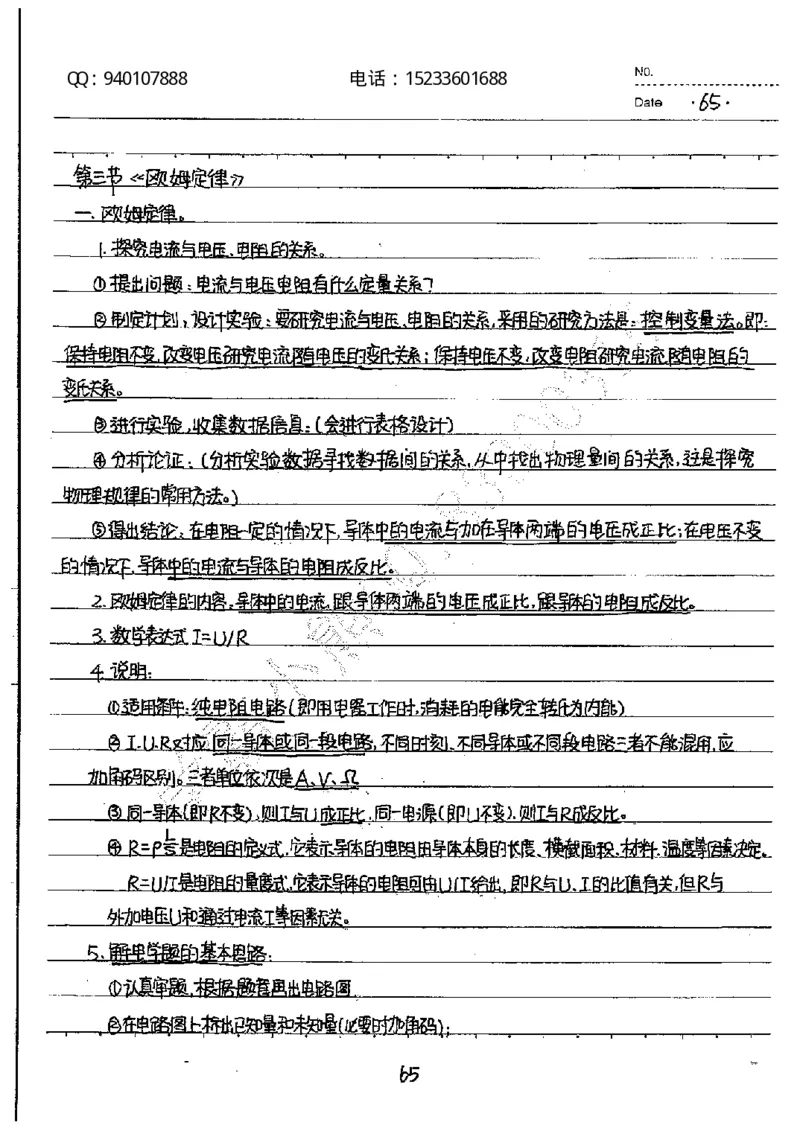 QQ：940107888 电话：15233601688 NO.
Date ·65·
第三节《欧姆定律》
一、欧姆定律。
1.探究电流与电压、电阻的关系。
①提出问题：电流与电压电阻有什么定量关系？
②制定计划，设计实验：要研究电流与电压、电阻的关系，采用的研究方法是：控制变量法。即：
保持电阻不变，改变电压研究电流随电压的变化关系；保持电压不变，改变电阻研究电流随电阻的
变化关系。
③进行实验，收集数据信息：（会进行表格设计）
④分析论证：（分析实验数据寻找数据间的关系，从中找出物理量间的关系，这是探究
物理规律的常用方法。）
⑤得出结论：在电阻一定的情况下，导体中的电流与加在导体两端的电压成正比；在电压不变
的情况下，导体中的电流与导体的电阻成反比。
2.欧姆定律的内容：导体中的电流，跟导体两端的电压成正比，跟导体的电阻成反比。
3.数学表达式 I=U/R
4.说明：
①适用条件：纯电阻电路（即用电器工作时，消耗的电能完全转化为内能）
②I、U、R对应同一导体或同一段电路，不同时刻、不同导体或不同段电路三者不能混用，应
加角码区别。三者单位依次是A、V、Ω
③同一导体（即R不变），则I与U成正比，同一电源（即U不变），则I与R成反比。
④R=ρL/S是电阻的定义式，它表示导体的电阻由导体本身的长度、横截面积、材料、温度等因素决定。
R=U/I是电阻的量度式，它表示导体的电阻可由U/I给出，即R与U、I的比值有关，但R与
外加电压U和通过电流I等因素无关。
5.解电学题的基本思路：
①认真审题，根据题意画出电路图
②在电路图上标出已知量和未知量（必要时加角码）；
65